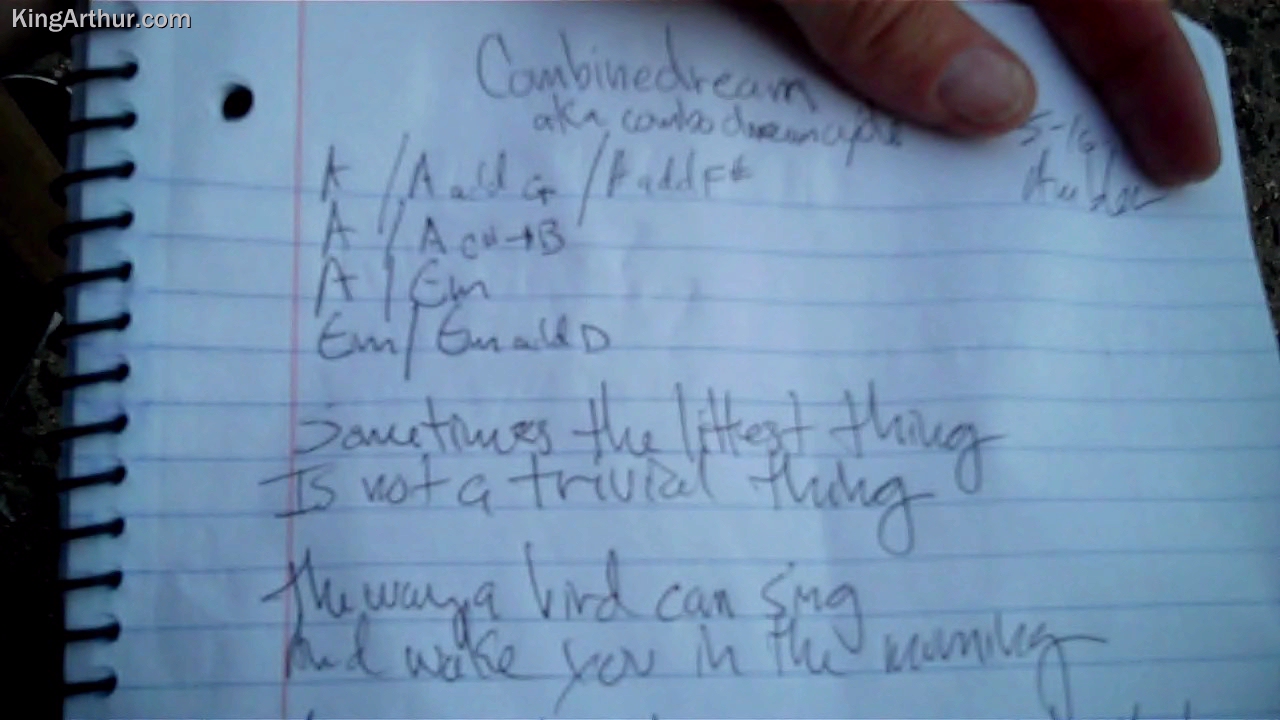 KingArthur.com
Combinedream
aka combo dream
5-16
A / A add G / A add F#
A / A C# → B
A / Em
Em / Em add D
Sometimes the littlest thing
Is not a trivial thing
the way a bird can sing
And wake you in the morning